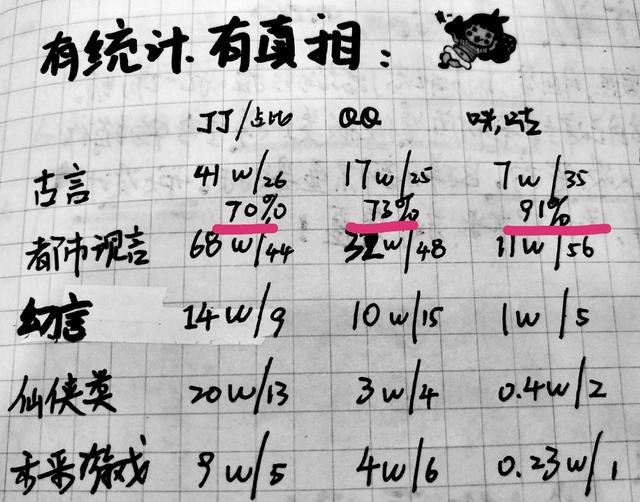 有统计.有真相:
JJ/占比 QQ 咪咕
古言 41w/26 17w/25 7w/35
70% 73% 91%
都市现言 68w/44 32w/48 11w/56
幻言 14w/9 10w/15 1w/5
仙侠类 20w/13 3w/4 0.4w/2
未来游戏 9w/5 4w/6 0.23w/1